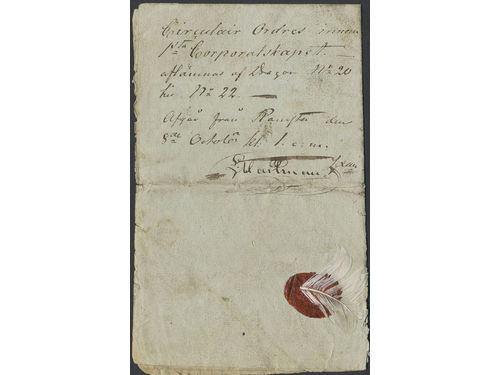 Circulair Ordres innom
1sta Corporalskapet. —
aflämnas af Dragon No 20
til No 22. —
Afgår från den
8de Octobr kl. 1. e.m.